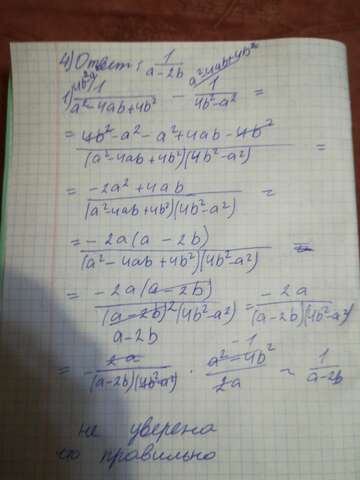 4) Ответ: 1/(a-2b)
1) 1/(a²-4ab+4b²) - 1/(4b²-a²) =
= (4b²-a²-a²+4ab-4b²)/((a²-4ab+4b²)(4b²-a²)) =
= (-2a²+4ab)/((a²-4ab+4b²)(4b²-a²)) =
= (-2a(a-2b))/((a²-4ab+4b²)(4b²-a²)) =
= (-2a(a-2b))/((a-2b)²(4b²-a²)) = (-2a)/((a-2b)(4b²-a²))
a-2b
-1
= -2a/((a-2b)(4b²-a²)) · (a²-4b²)/2a = 1/(a-2b)
не уверена
что правильно